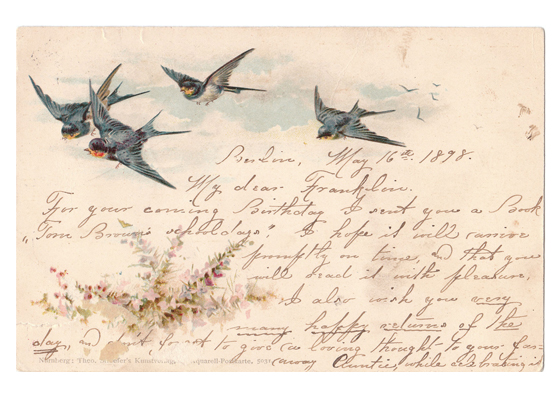 Berlin, May 16th 1898.
My dear Franklin.
For your coming Birthday I sent you a Book
"Tom Brown's schooldays", I hope it will arrive
promptly on time, and that you
will read it with pleasure,
I also wish you very
many happy returns of the
day, and don't for-not to give a loving thought to your far-
away Auntie, while celebrating it
Nürnberg: Theo. Stroefer's Kunstverlag. Aquarell-Postkarte,